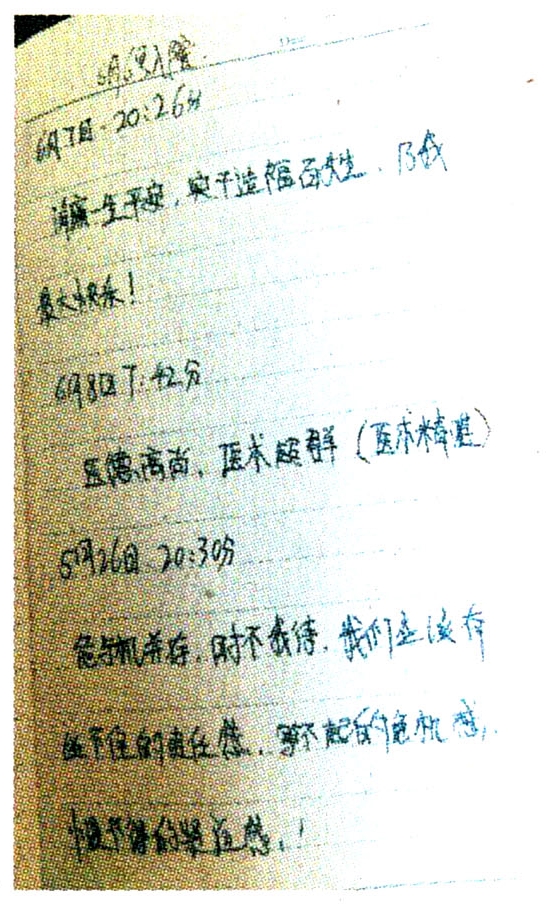 6月6日入院
6月7日·20:26分
消癌一生平安,实干造福百姓,乃我
最大快乐!
6月8日7:42分
医德高尚、医术超群(医术精进)
5月26日 20:30分
危与机并存,时不我待,我们应该有
坐不住的责任感,等不起的危机感,
慢不得的紧迫感!